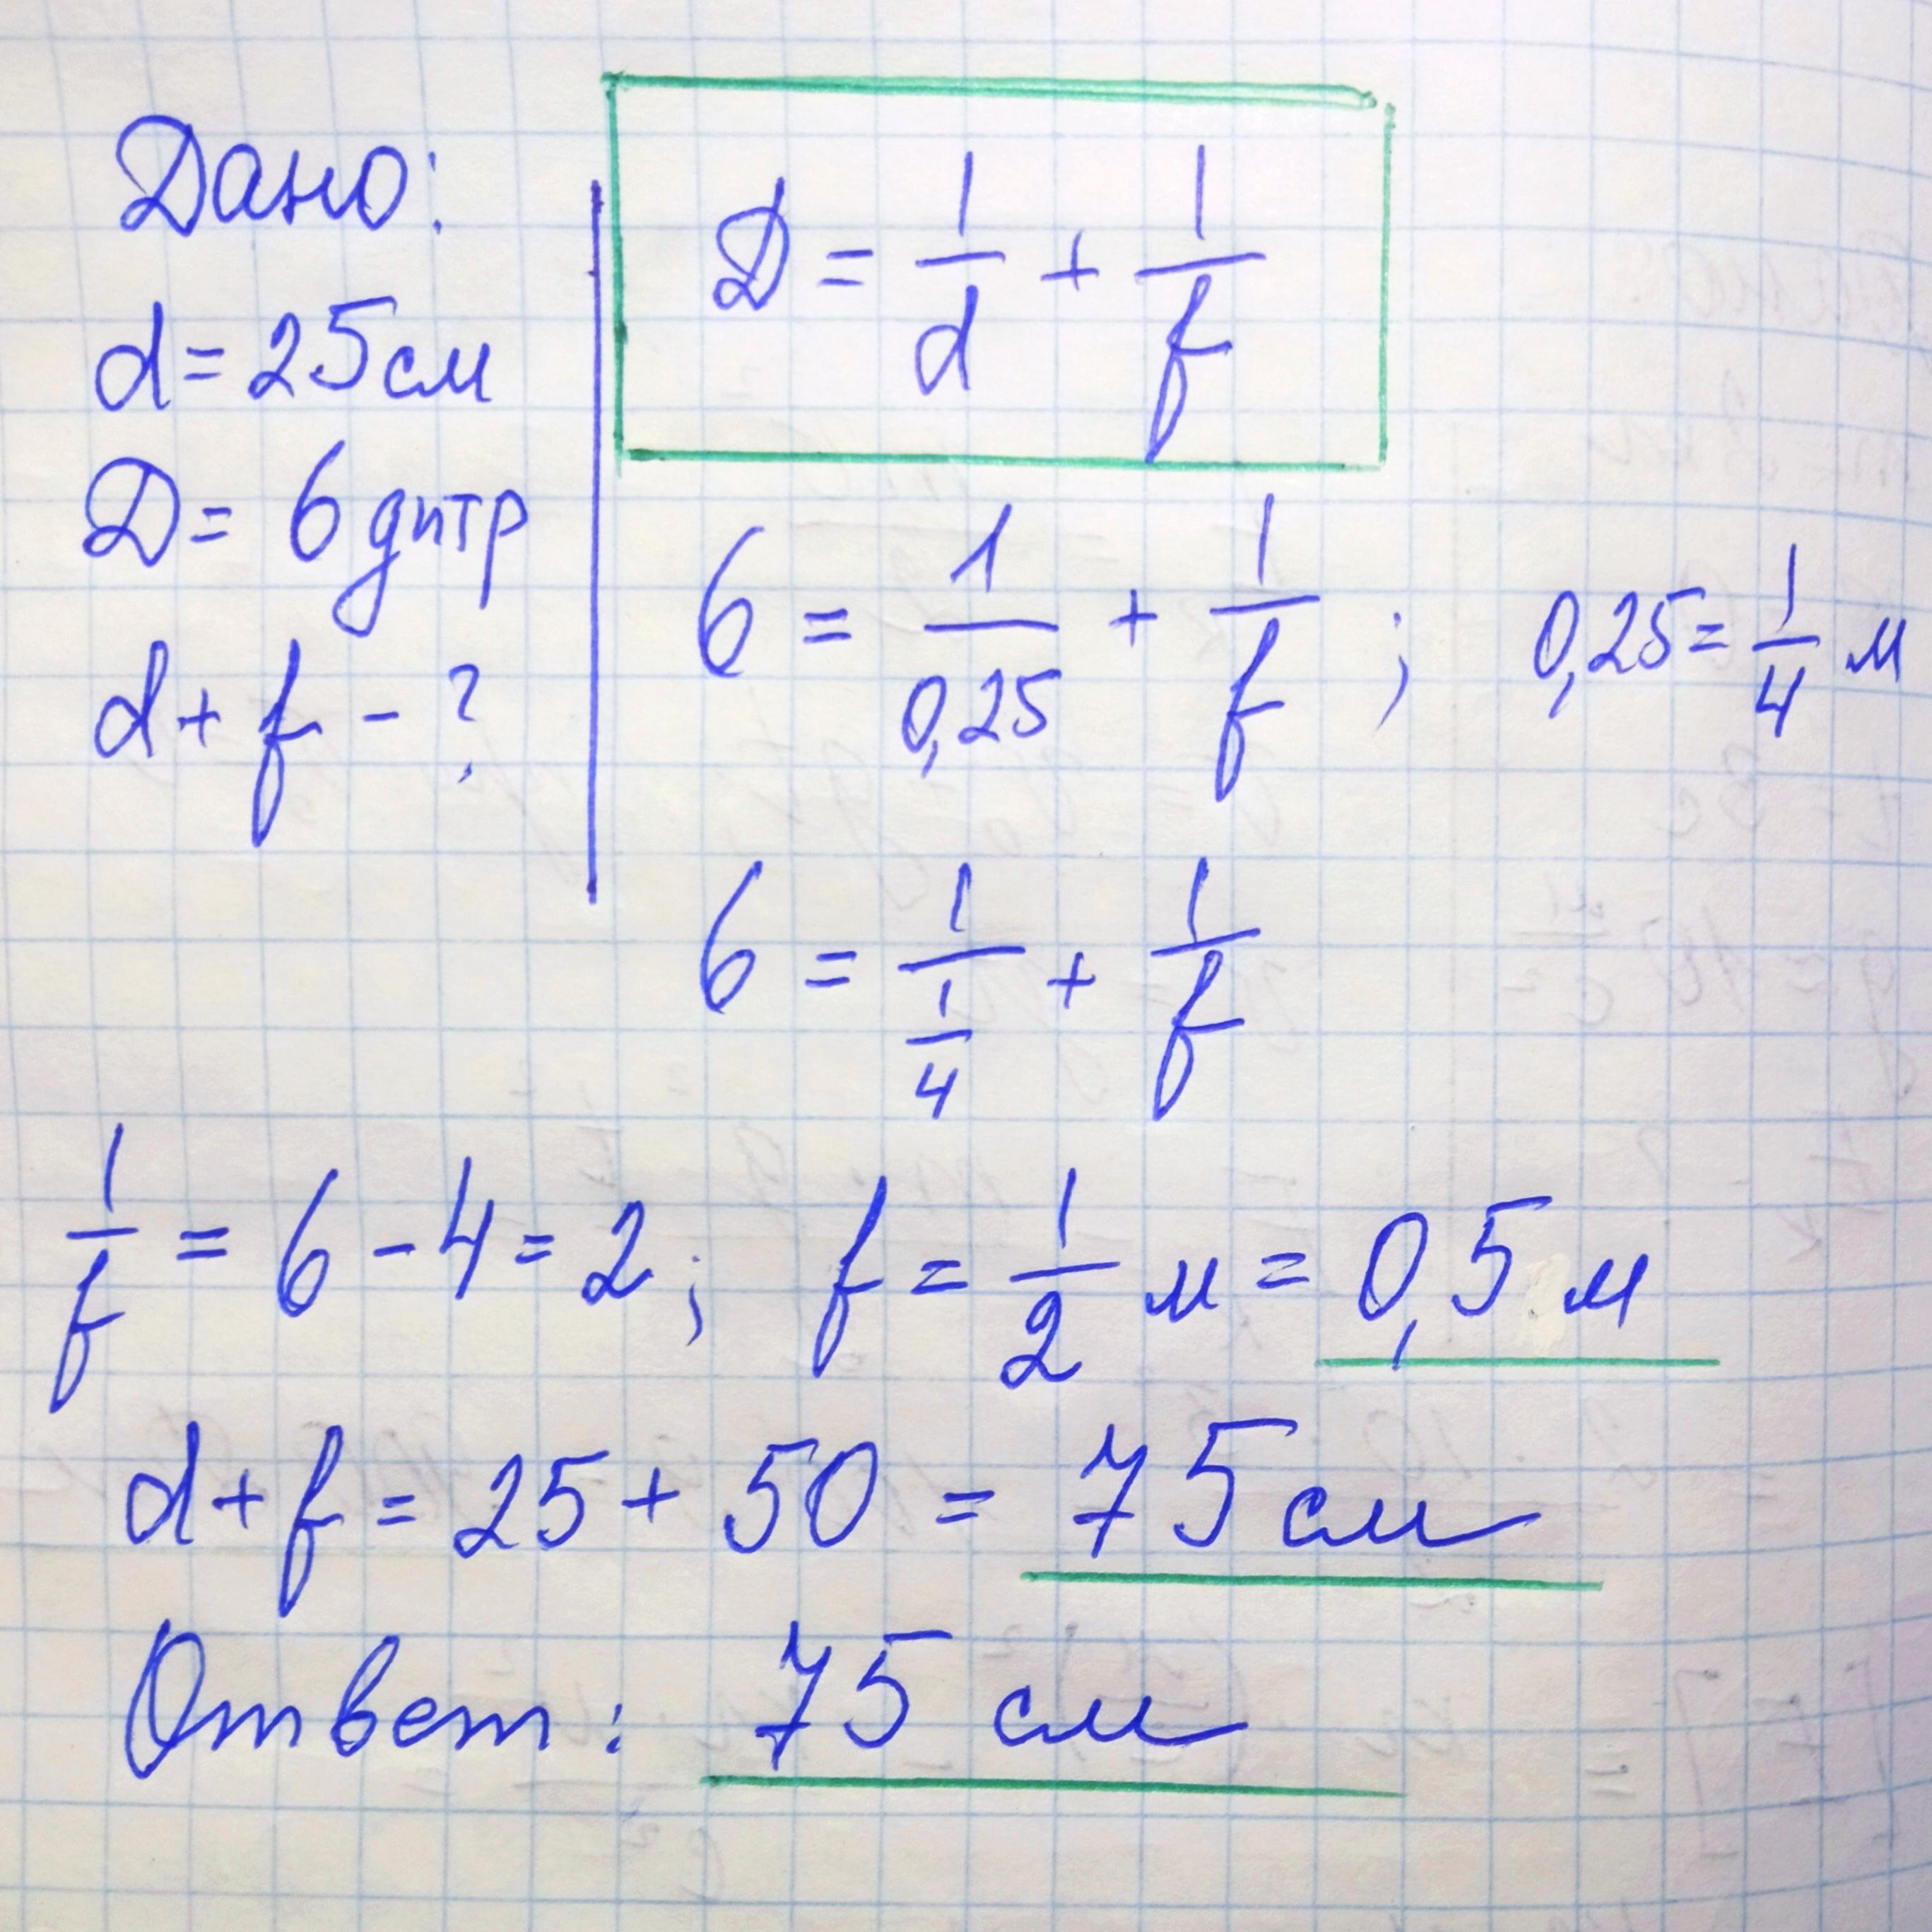 Дано:
d = 25 см
D = 6 дптр
d + f - ?
D = 1/d + 1/f
6 = 1/0,25 + 1/f ; 0,25 = 1/4 м
6 = 1/(1/4) + 1/f
1/f = 6 - 4 = 2; f = 1/2 м = 0,5 м
d + f = 25 + 50 = 75 см
Ответ: 75 см